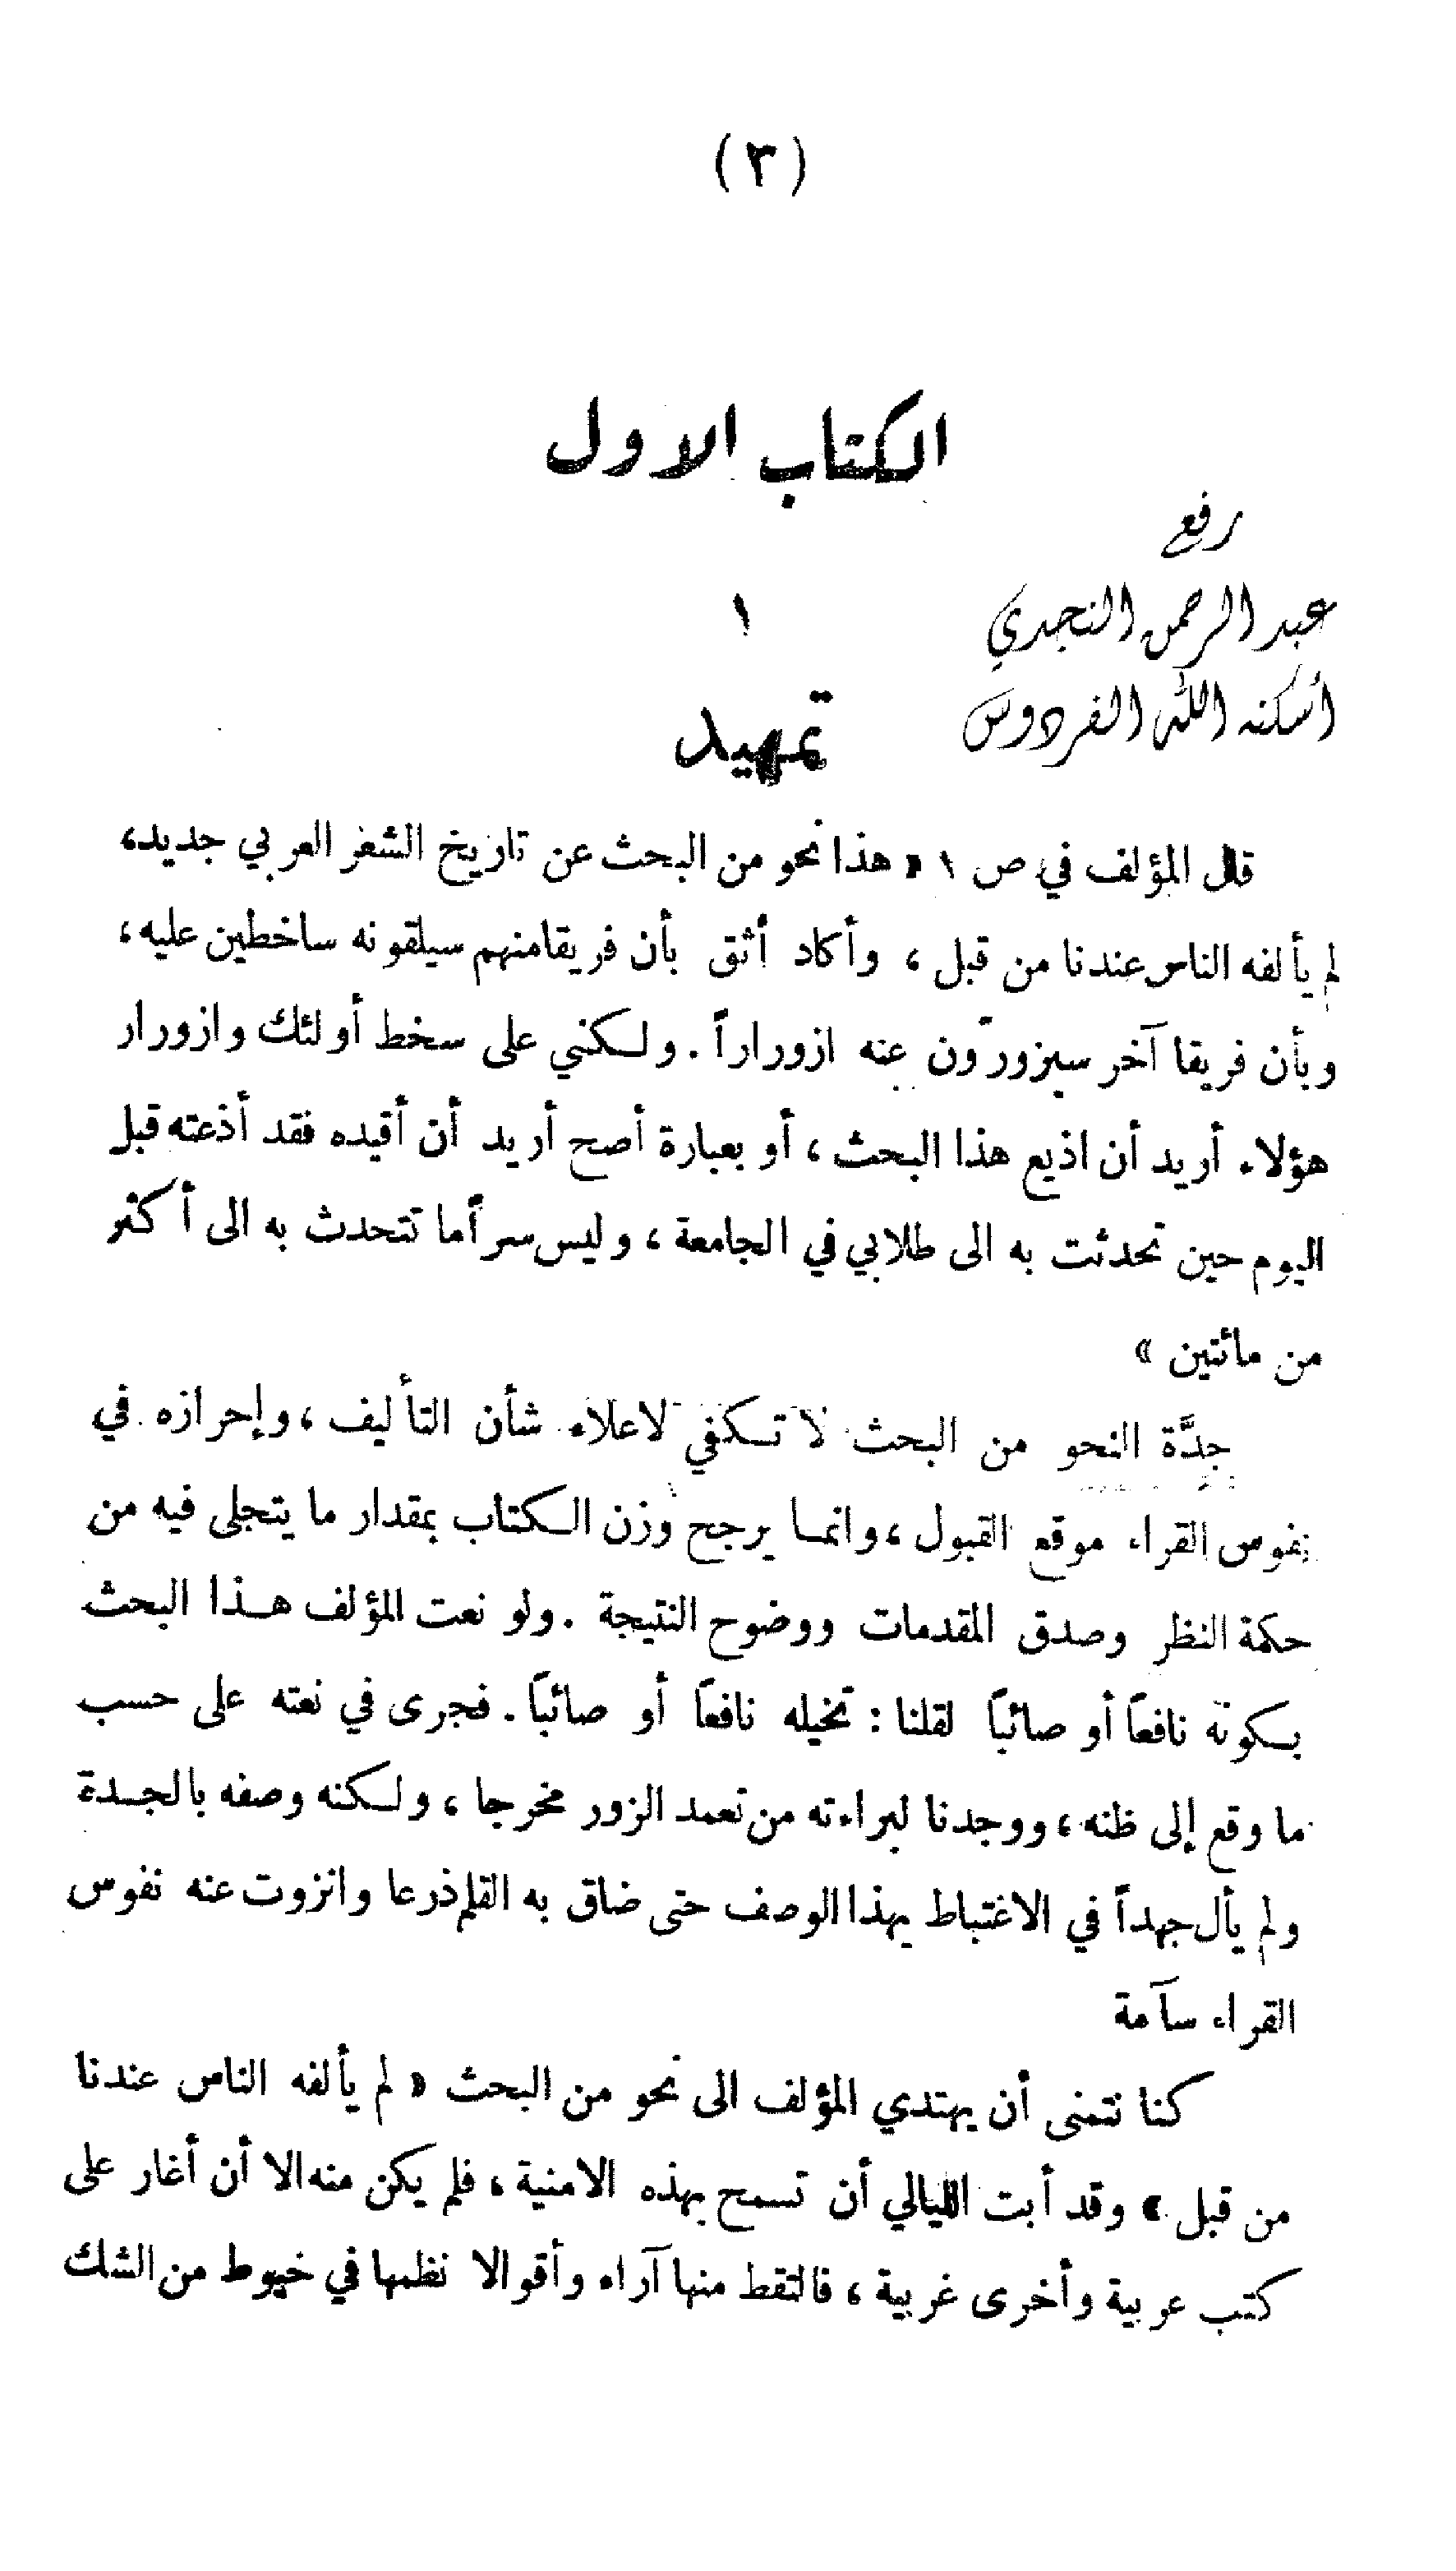 (٣)
الكتاب الاول
رفع
عبد الرحمن النجدي
أسكنه الله الفردوس
١
تمهيد
قال المؤلف في ص ١ « هذا نحو من البحث عن تاريخ الشعر العربي جديد،
لم يألفه الناس عندنا من قبل ، وأكاد أثق بأن فريقا منهم سيلقونه ساخطين عليه ،
وبأن فريقا آخر سيزورّون عنه ازوراراً . ولكني على سخط أولئك وازورار
هؤلاء أريد أن اذيع هذا البحث ، أو بعبارة أصح أريد أن أقيده فقد أذعته قبل
اليوم حين تحدثت به الى طلابي في الجامعة ، وليس سراً ما تتحدث به الى أكثر
من مائتين »
جدَّة النحو من البحث لا تكفي لاعلاء شأن التأليف ، وإحرازه في
نفوس القراء موقع القبول ، وانما يرجح وزن الكتاب بمقدار ما يتجلى فيه من
حكمة النظر وصدق المقدمات ووضوح النتيجة . ولو نعت المؤلف هذا البحث
بكونه نافعاً أو صائباً لقلنا : تخيله نافعاً أو صائباً . فجرى في نعته على حسب
ما وقع إلى ظنه ، ووجدنا لبراءته من تعمد الزور مخرجا ، ولكنه وصفه بالجدة
ولم يأل جهداً في الاغتباط بهذا الوصف حتى ضاق به القلم ذرعا وانزوت عنه نفوس
القراء سآمة
كنا نتمنى أن يهتدي المؤلف الى نحو من البحث « لم يألفه الناس عندنا
من قبل » وقد أبت الليالي أن تسمح بهذه الامنية ، فلم يكن منه الا أن أغار على
كتب عربية وأخرى غربية ، فالتقط منها آراء وأقوالا نظمها في خيوط من الشك